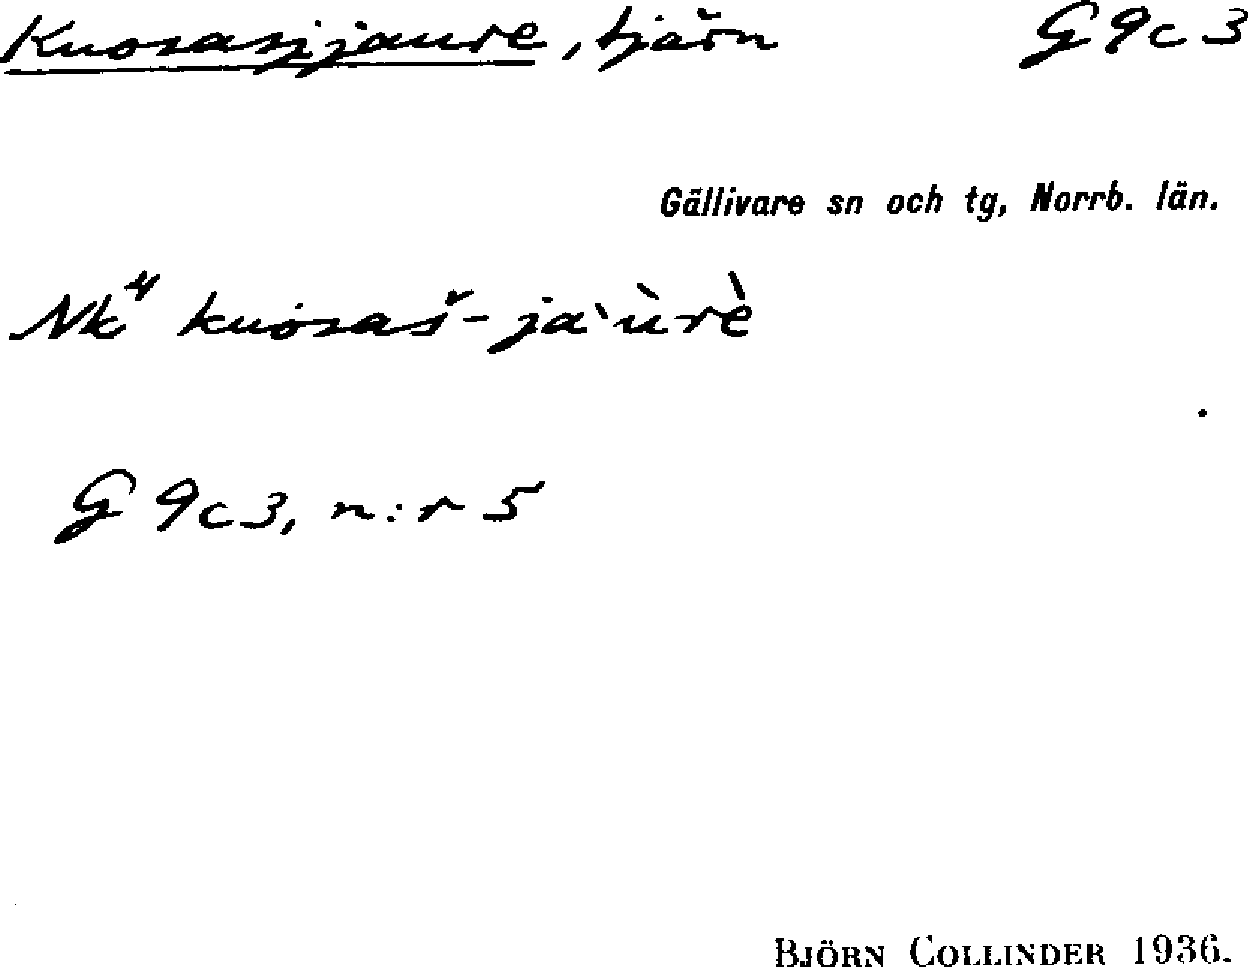 Kuosasjjaure, tjärn G9c3
Gällivare sn och tg, Norrb. län.
Nk⁴ kuosaš-ja`ùrè
G9c3, n:r 5
BJÖRN COLLINDER 1936.